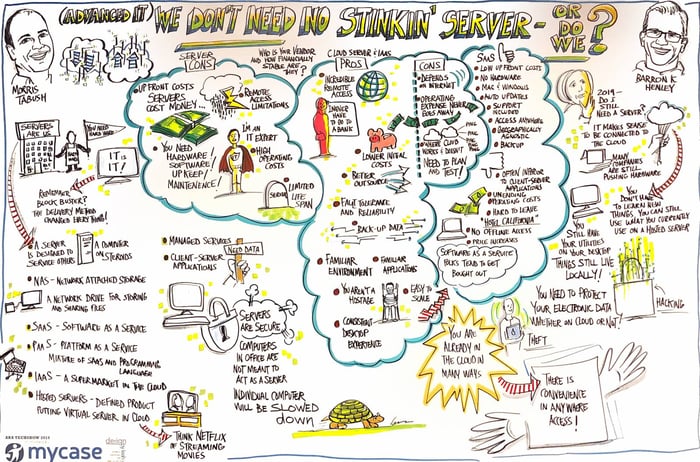 (ADVANCED IT) WE DON'T NEED NO STINKIN' SERVER - OR DO WE?
MORRIS
TABUSH
BARRON K
HENLEY
SERVERS
ARE US
YOU NEED
IT is
IT!
REMEMBER
BLOCK BUSTER?
THE DELIVERY METHOD
CHANGED EVERYTHING!
A SERVER
IS DESIGNED TO
SERVICE OTHERS
A COMPUTER
ON STEROIDS
NAS - NETWORK ATTACHED STORAGE
A NETWORK DRIVE FOR STORING
AND SHARING FILES
SAAS - SOFTWARE AS A SERVICE
PAAS - PLATFORM AS A SERVICE
MIXTURE OF SAAS AND PROGRAMMING
LANGUAGE
IAAS - A SUPERMARKET IN THE CLOUD
HOSTED SERVERS - DEFINED PRODUCT
PUTTING VIRTUAL SERVER IN CLOUD
THINK NETFLIX
OF STREAMING
MOVIES
ABA TECHSHOW 2015
mycase
SERVER
CONS
UP FRONT COSTS
SERVERS
COST MONEY...
REMOTE
ACCESS
LIMITATIONS
I'm AN
IT EXPERT
YOU NEED
HARDWARE /
SOFTWARE
UPKEEP /
MAINTENENCE!
HIGH
OPERATING
COSTS
SERVER
LIMITED
LIFE
SPAN
WHO IS YOUR VENDOR
AND HOW FINANCIALLY
STABLE ARE
THEY?
MANAGED SERVICES
CLIENT-SERVER
APPLICATIONS
NEED DATA
SERVERS
ARE SECURE
COMPUTERS
IN OFFICE ARE
NOT MEANT TO
ACT AS A SERVER
INDIVIDUAL COMPUTER
WILL BE SLOWED
down
CLOUD SERVER & IAAS
PROS
INCREDIBLE
REMOTE
ACCESS
LOWER INITIAL
COSTS
BETTER
OUTSOURCE
FAULT TOLERANCE
AND RELIABILITY
BACK-UP DATA
FAMILIAR
ENVIRONMENT
FAMILIAR
APPLICATIONS
YOU AREN'T A
HOSTAGE
EASY TO
SCALE
CONSISTENT
DESKTOP
EXPERIENCE
CONS
DEPENDS
ON INTERNET
OPERATING
EXPENSE NEVER
GOES AWAY
NEED TO PLAN
AND TEST!
SAAS
LOW UP FRONT COSTS
NO HARDWARE
MAC & WINDOWS
AUTO UPDATES
SUPPORT
INCLUDED
ACCESS ANYWHERE
GEOGRAPHICALLY
AGNOSTIC
BACKUP
OFTEN INFERIOR
TO CLIENT-SERVER
APPLICATIONS
UNENDING
OPERATING COSTS
HARD TO LEAVE
"HOTEL CALIFORNIA"
NO OFFLINE ACCESS
PRICE INCREASES
SOFTWARE AS A SERVICE
TENDS TO GET
BOUGHT OUT
DO I
STILL NEED
A SERVER?
IT MAKES SENSE
TO BE CONNECTED
TO THE
CLOUD
MANY
COMPANIES
ARE STILL
PUSHING HARDWARE
YOU
DON'T HAVE
TO LEARN NEW
THINGS, YOU CAN STILL
USE WHAT YOU CURRENTLY
USE ON A HOSTED SERVER
YOU
STILL HAVE
YOUR UTILITIES
ON YOUR DESKTOP
THINGS STILL LIVE
LOCALLY!
HACKING
YOU NEED TO PROTECT
YOUR ELECTRONIC DATA
WHETHER ON CLOUD OR NOT!
THEFT
YOU ARE
ALREADY
IN THE
CLOUD IN
MANY WAYS
THERE IS
CONVENIENCE
IN ANYWHERE
ACCESS!